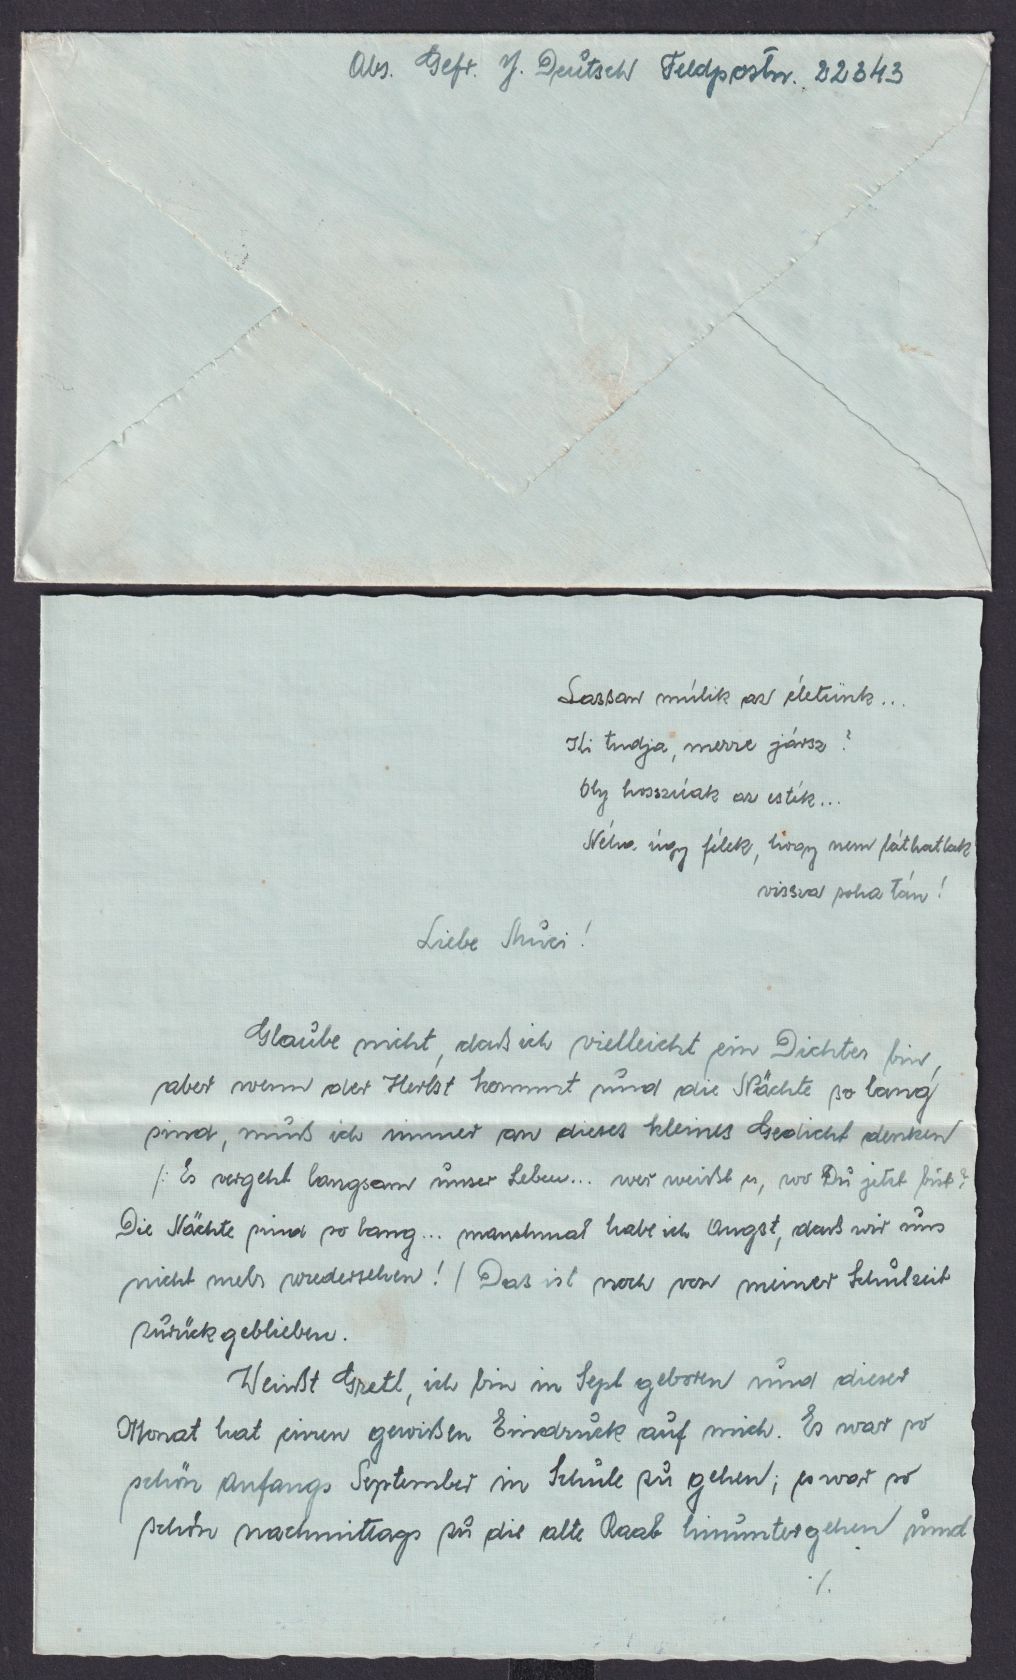 Abs. Gefr. J. Deutsch Feldpostnr. 22343
Lassan múlik az életünk...
Ki tudja, merre jársz?
Oly hosszúak az esték...
Néha úgy félek, hogy nem láthatlak
vissza soha tán!
Liebe Muci!
Glaube nicht, daß ich vielleicht ein Dichter bin,
aber wenn der Herbst kommt und die Nächte so lang
sind, muß ich immer an dieses kleines Gedicht denken
/: Es vergeht langsam unser Leben... wer weißt es, wo Du jetzt bist?
Die Nächte sind so lang... manchmal habe ich Angst, daß wir uns
nicht mehr wiedersehen! / Das ist noch von meiner Schulzeit
zurückgeblieben.
Weißt Gretl, ich bin in Sept geboren und dieser
Monat hat einen gewißen Eindruck auf mich. Es war so
schön Anfangs September in Schule zu gehen; es war so
schön nachmittags zu die alte Raab hinuntergehen und
./.